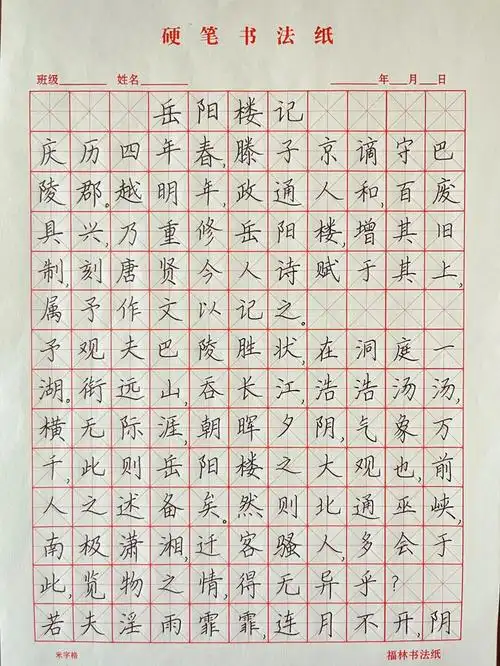 硬笔书法纸
班级 姓名 年 月 日
岳阳楼记
庆历四年春,滕子京谪守巴
陵郡。越明年,政通人和,百废
具兴,乃重修岳阳楼,增其旧
制,刻唐贤今人诗赋于其上,
属予作文以记之。
予观夫巴陵胜状,在洞庭一
湖。衔远山,吞长江,浩浩汤汤,
横无际涯,朝晖夕阴,气象万
千,此则岳阳楼之大观也,前
人之述备矣。然则北通巫峡,
南极潇湘,迁客骚人,多会于
此,览物之情,得无异乎?
若夫淫雨霏霏,连月不开,阴
米字格 福林书法纸